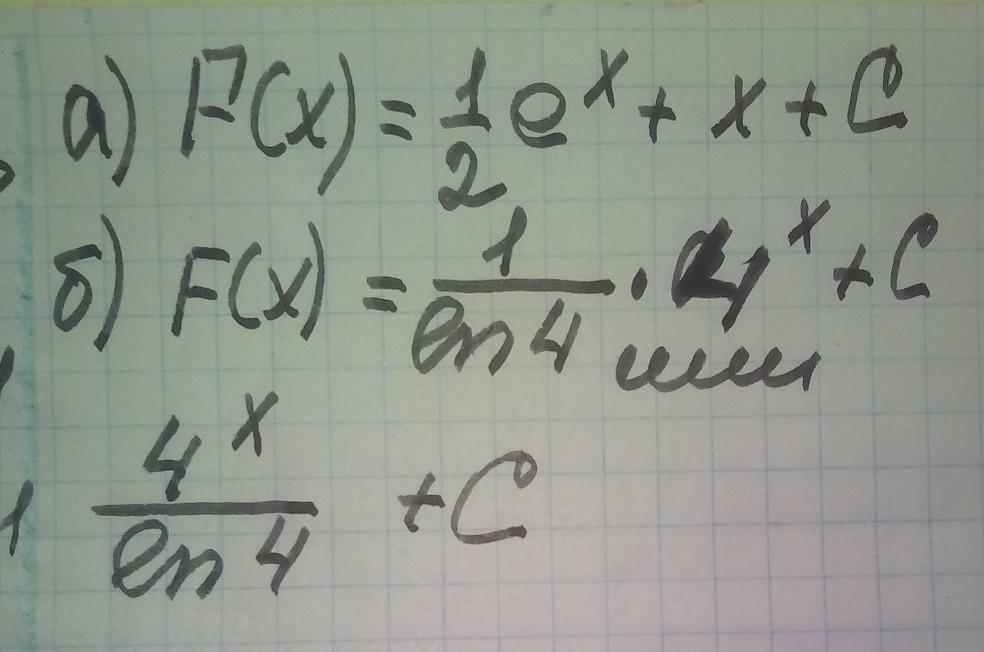 а) F(x) = 1/2 e^x + x + C
б) F(x) = 1/ln4 · 4^x + C
или
4^x/ln4 + C